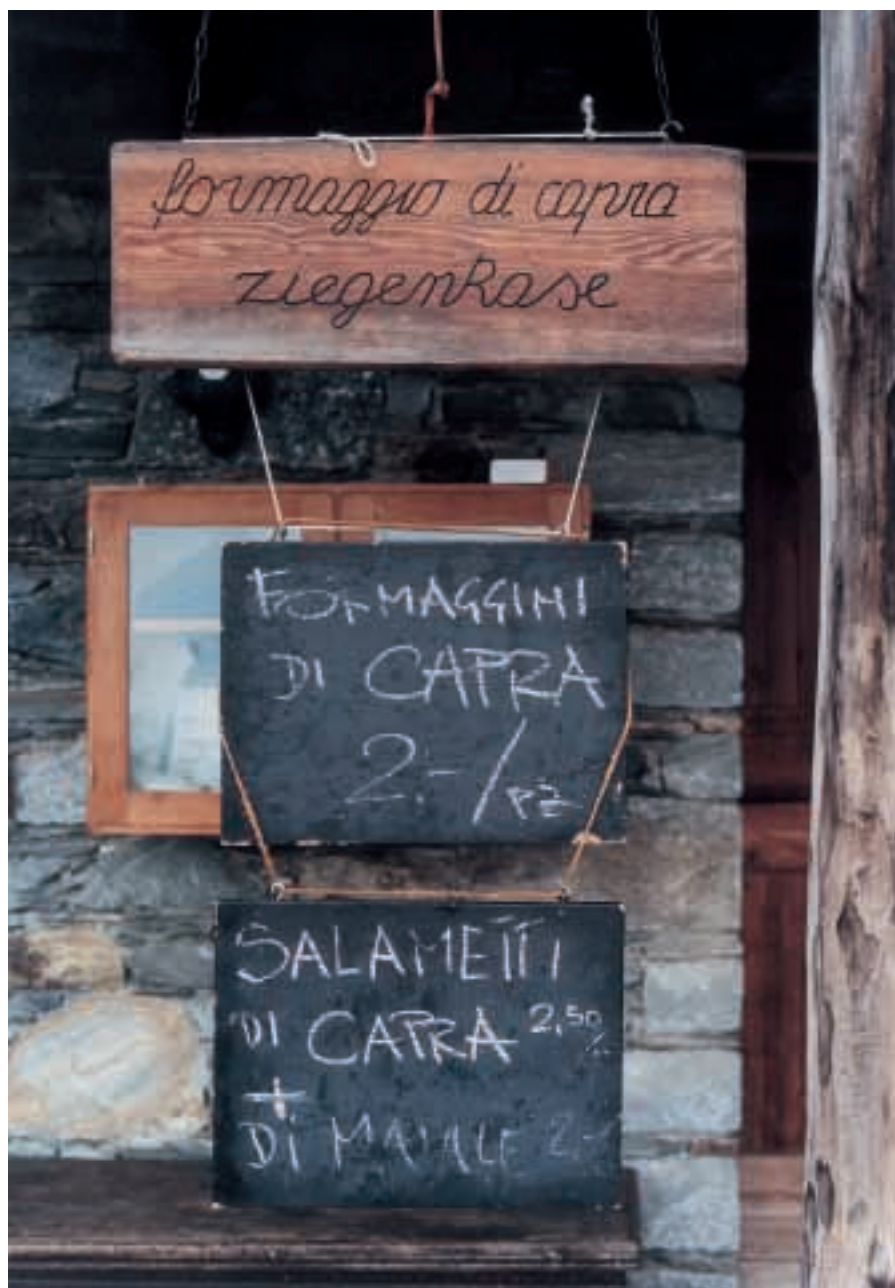 formaggio di capra
ziegenkase
FORMAGGINI
DI CAPRA
2.-/PZ
SALAMETTI
DI CAPRA 2,50
+
DI MAIALE 2.-